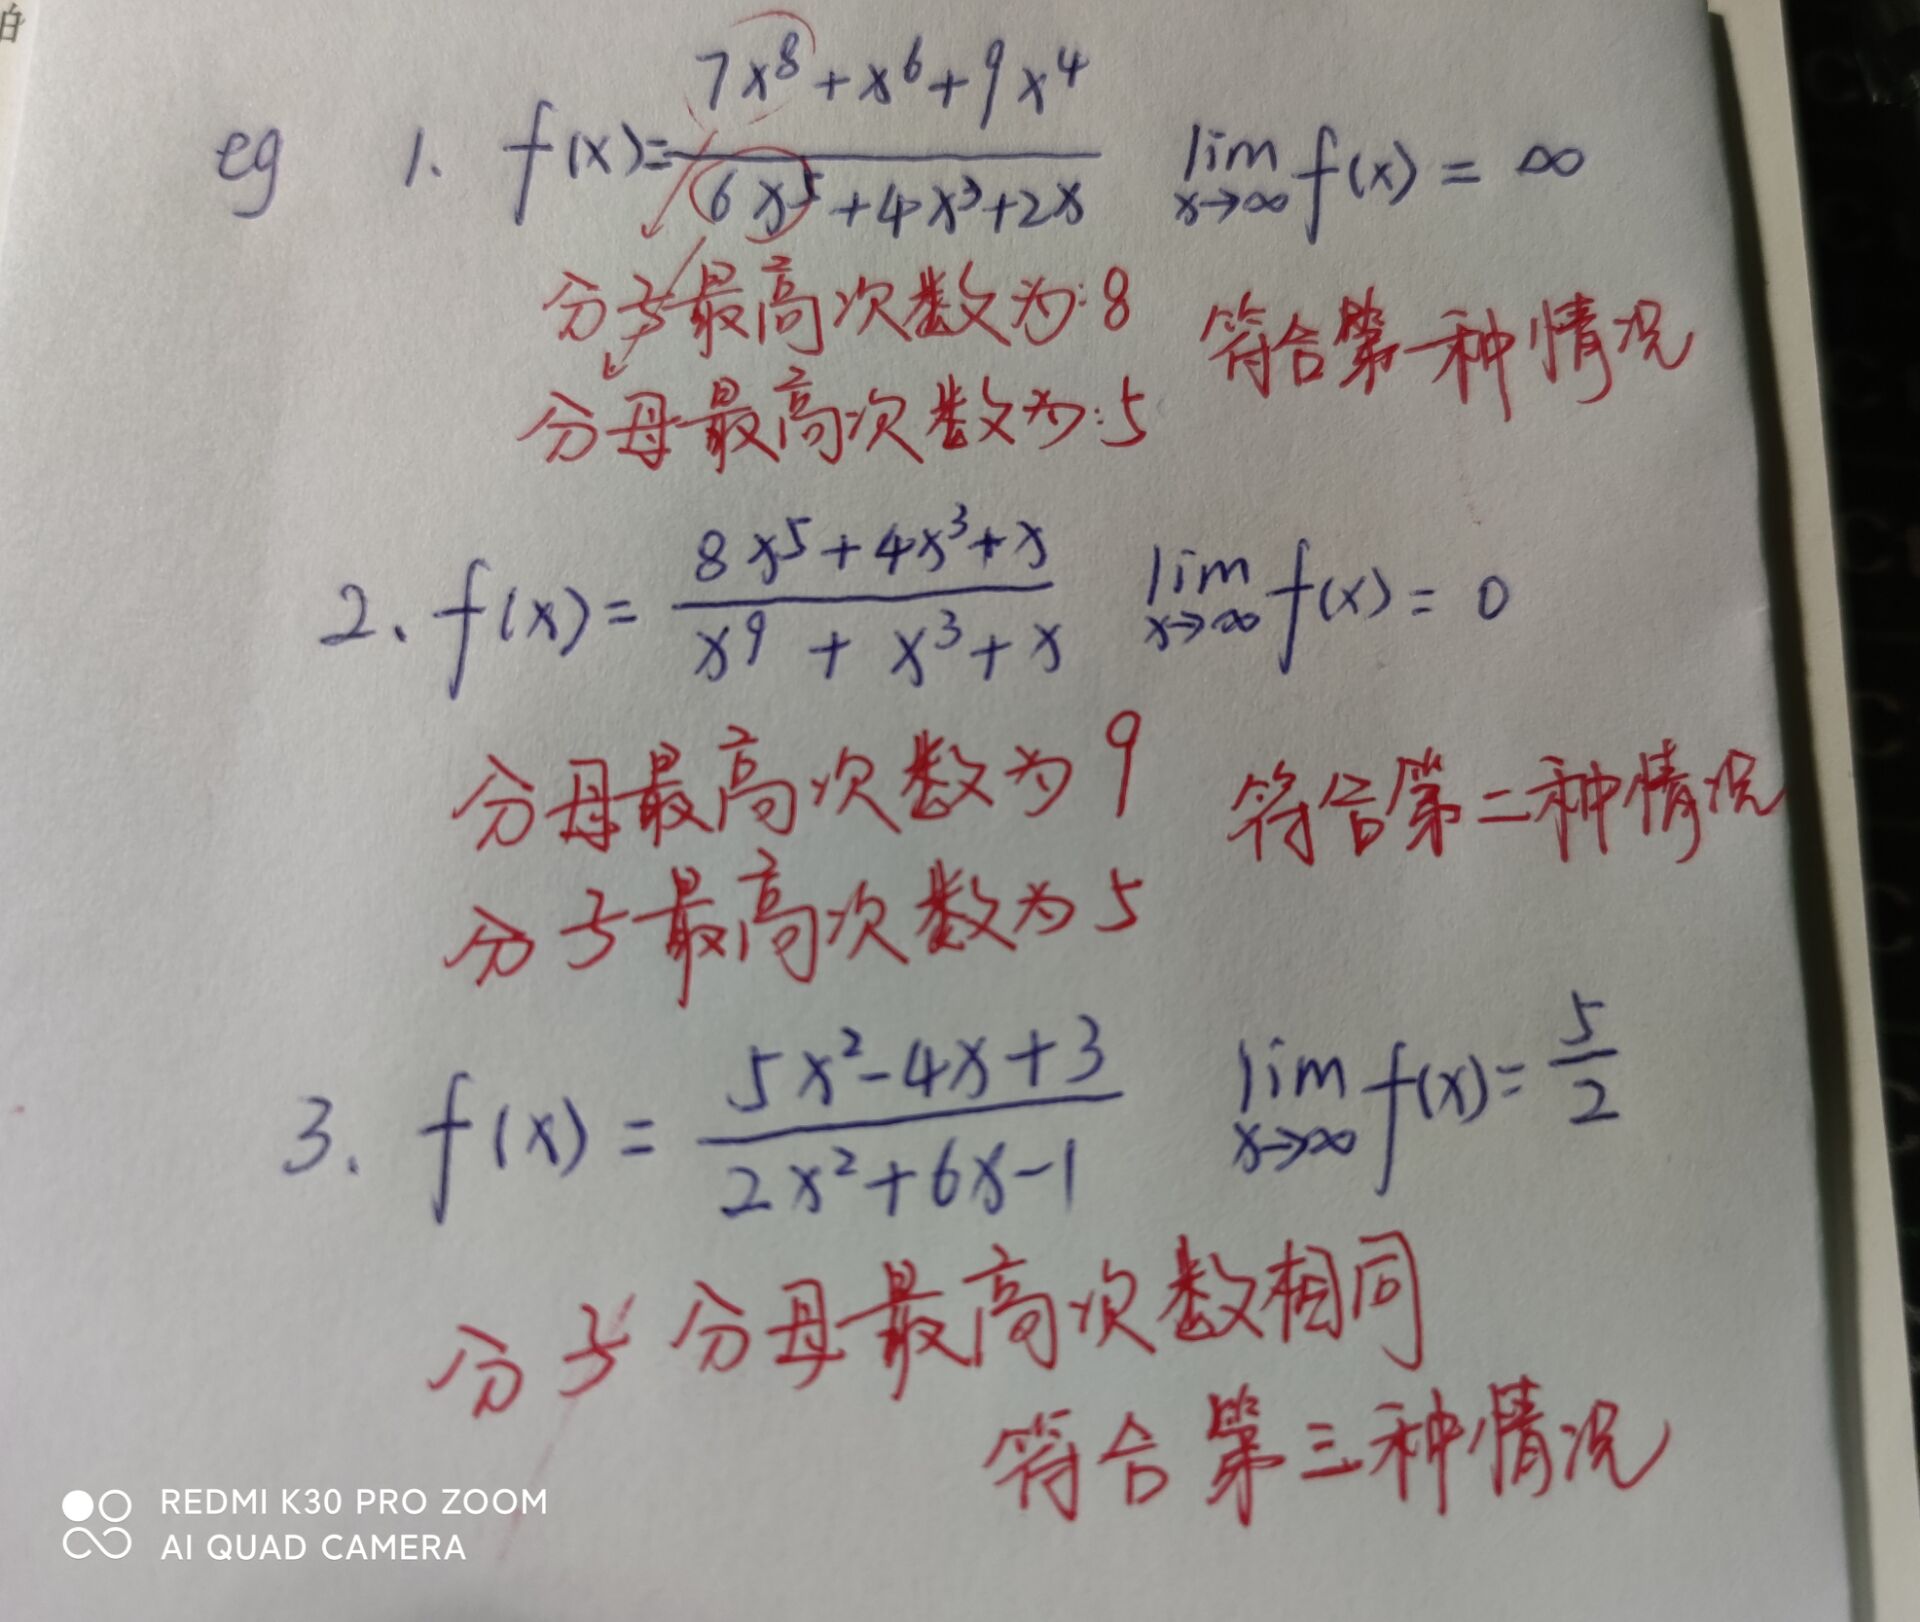 白
eg 1. f(x)= (7x⁸+x⁶+9x⁴)/(6x⁵+4x³+2x) lim x→∞ f(x) = ∞
分子最高次数为:8 符合第一种情况
分母最高次数为:5
2. f(x)= (8x⁵+4x³+x)/(x⁹+x³+x) lim x→∞ f(x) = 0
分母最高次数为9 符合第二种情况
分子最高次数为5
3. f(x) = (5x²-4x+3)/(2x²+6x-1) lim x→∞ f(x)= 5/2
分子分母最高次数相同
符合第三种情况
REDMI K30 PRO ZOOM
AI QUAD CAMERA